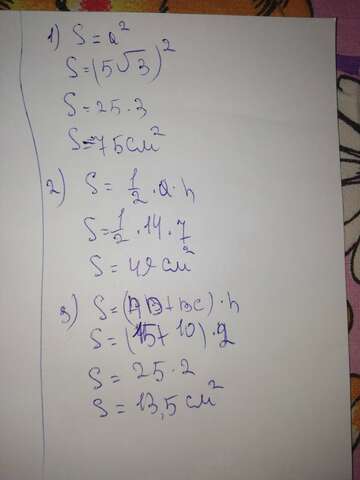 1) S=a²
S=(5√3)²
S=25·3
S=75см²
2) S=1/2·a·h
S=1/2·14·7
S=49см²
3) S=(AD+BC)·h
S=(15+10)·2
S=25·2
S=13,5см²